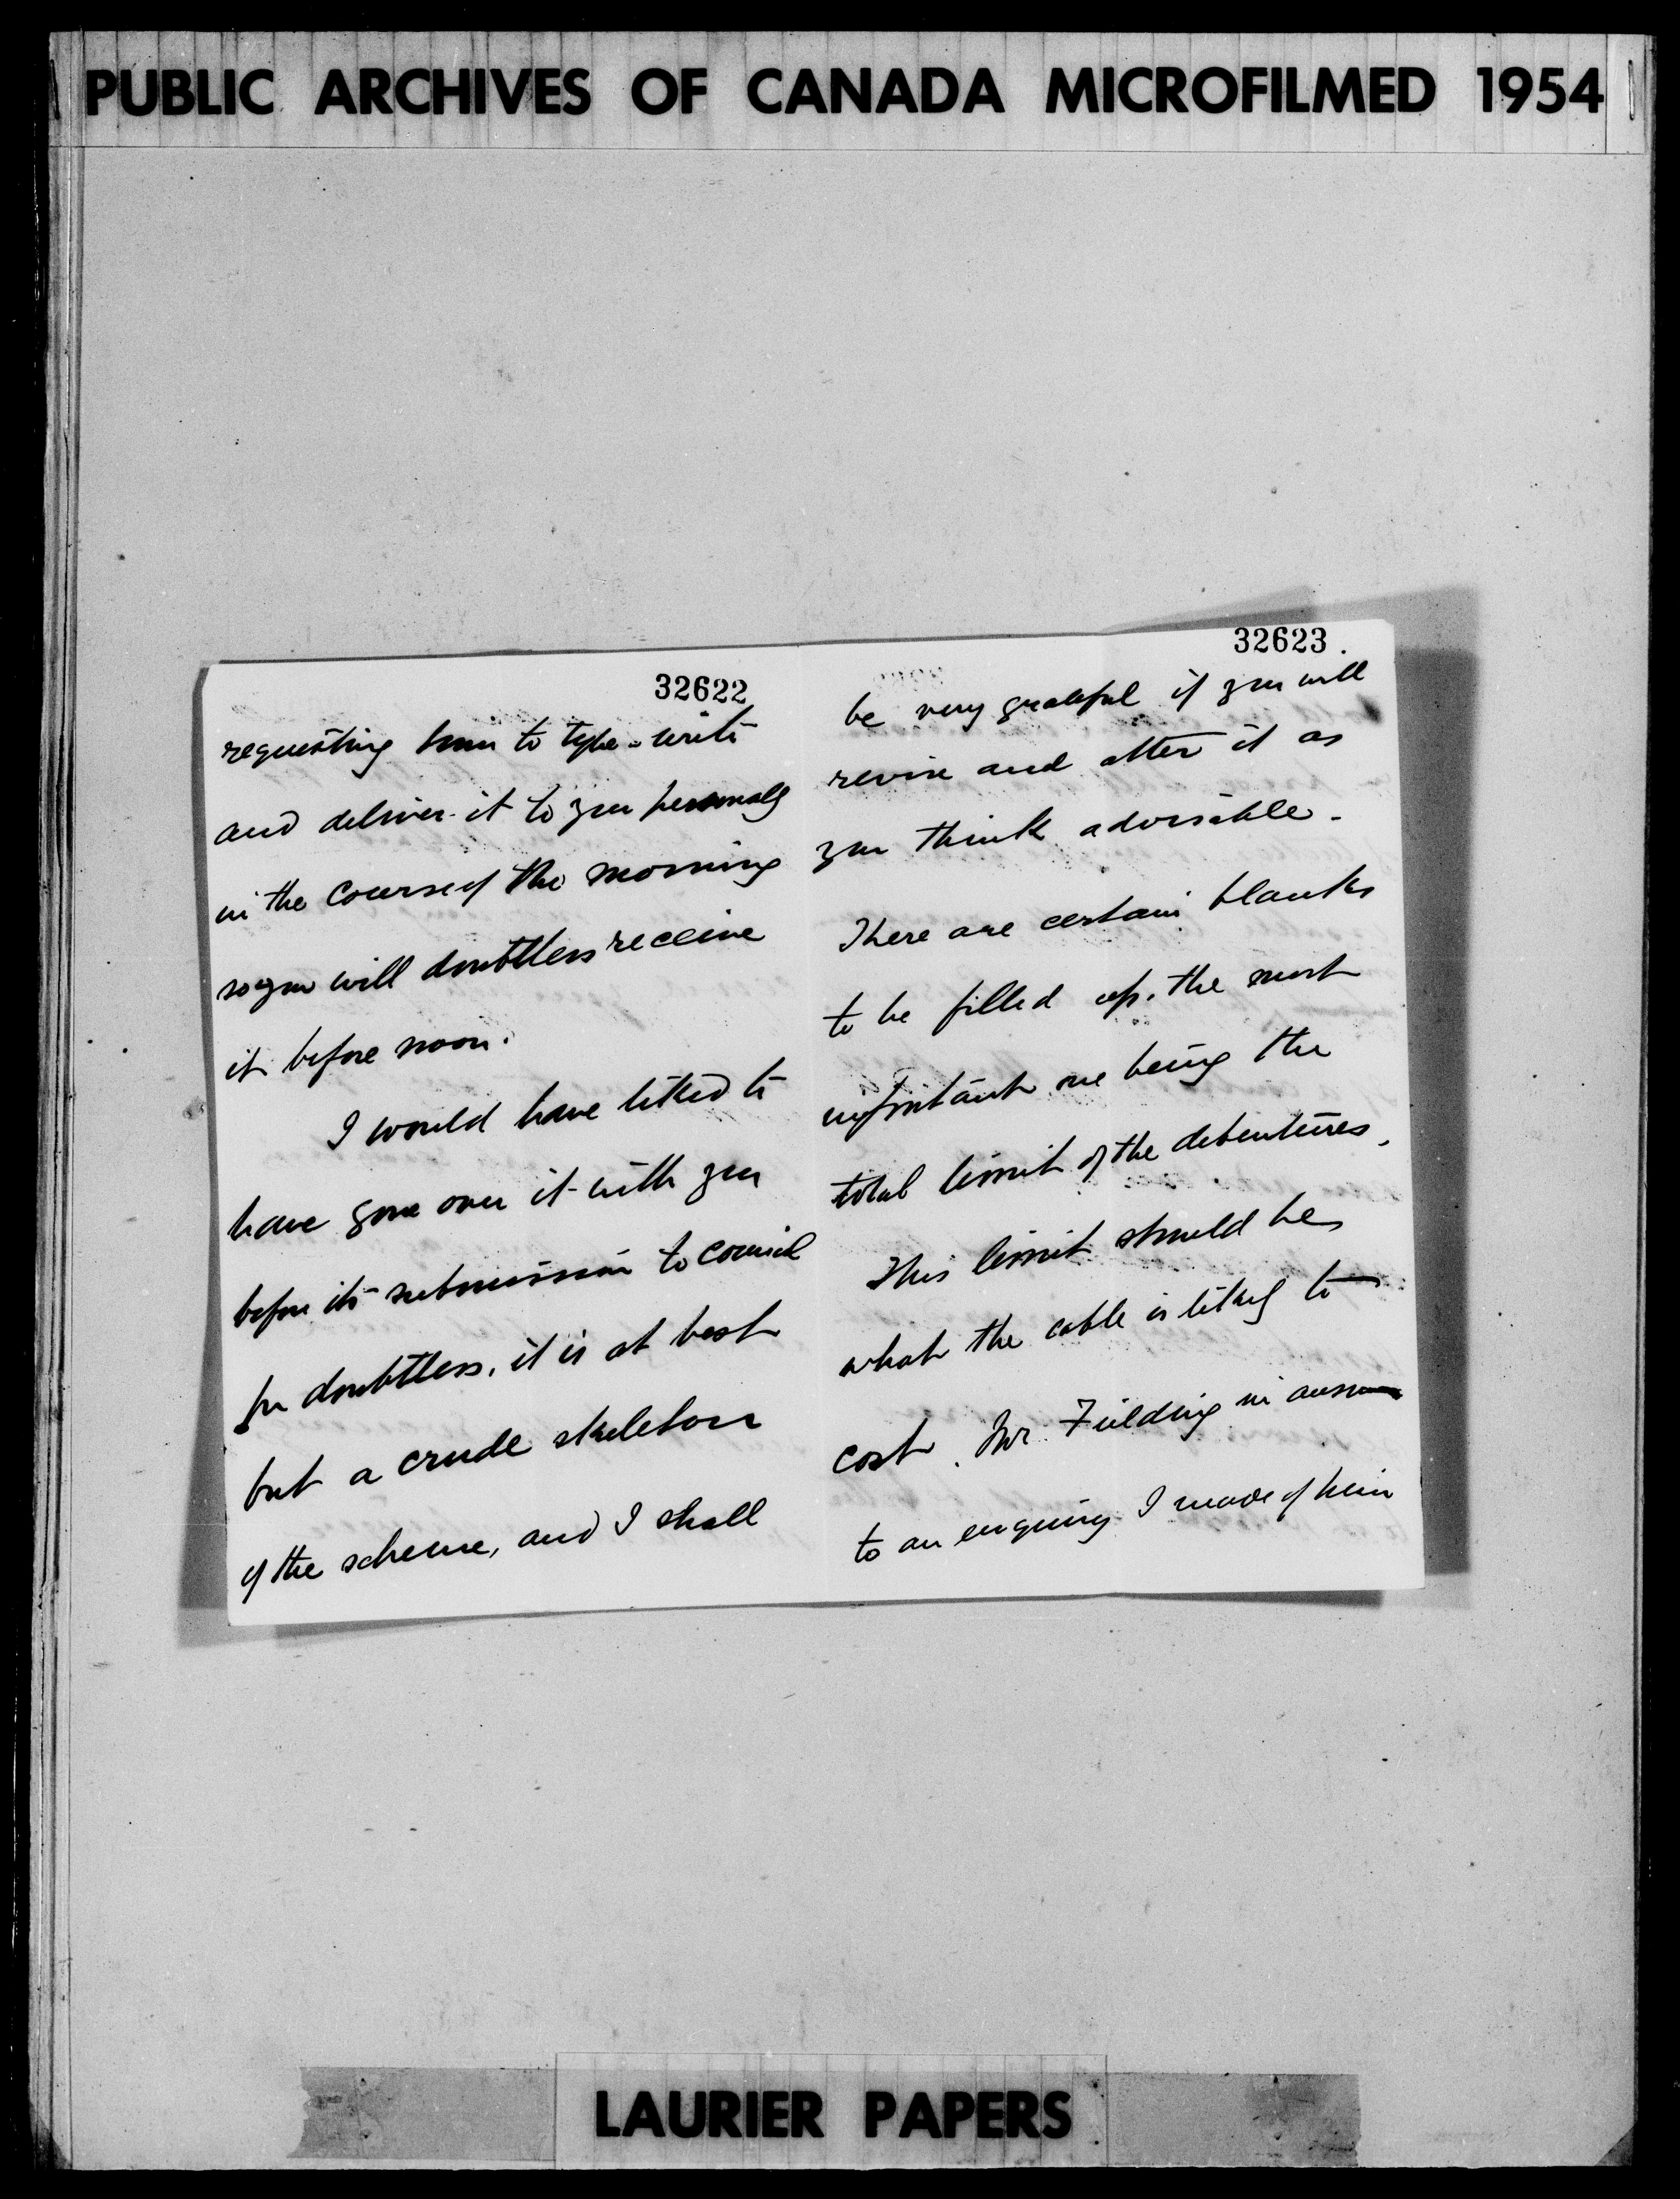 PUBLIC ARCHIVES OF CANADA MICROFILMED 1954
32622
requesting him to type-write
and deliver it to you personally
in the course of the morning
so you will doubtless receive
it before noon.
I would have liked to
have gone over it with you
before its submission to Council
for doubtless, it is at best
but a crude skeleton
of the scheme, and I shall
32623.
be very grateful if you will
revise and alter it as
you think advisable.
There are certain blanks
to be filled up, the most
important one being the
total limit of the debentures.
This limit should be
what the cable is likely to
cost. Mr. Fielding in answer
to an enquiry I made of him
LAURIER PAPERS